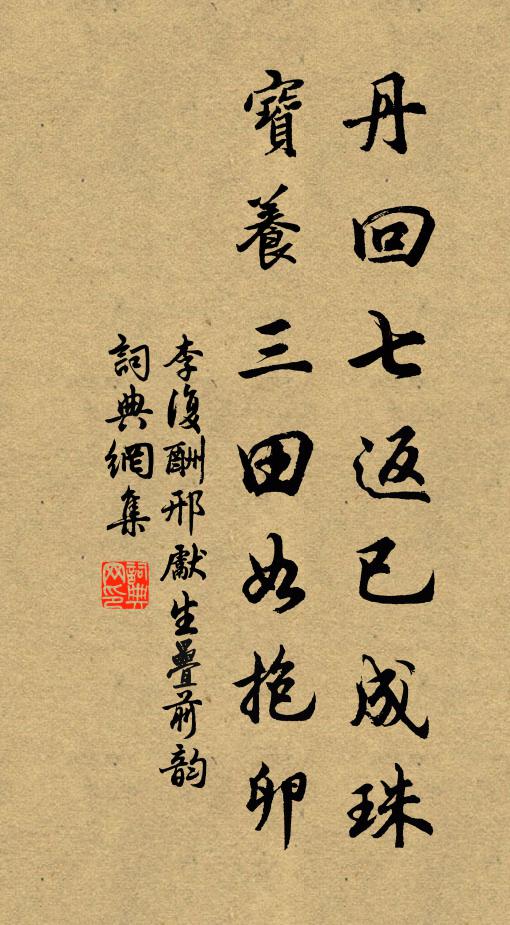 丹回七返已成珠
寶養三田如抱卵
李復酬邢獻生疊前韵
詞典網集
詞典网印